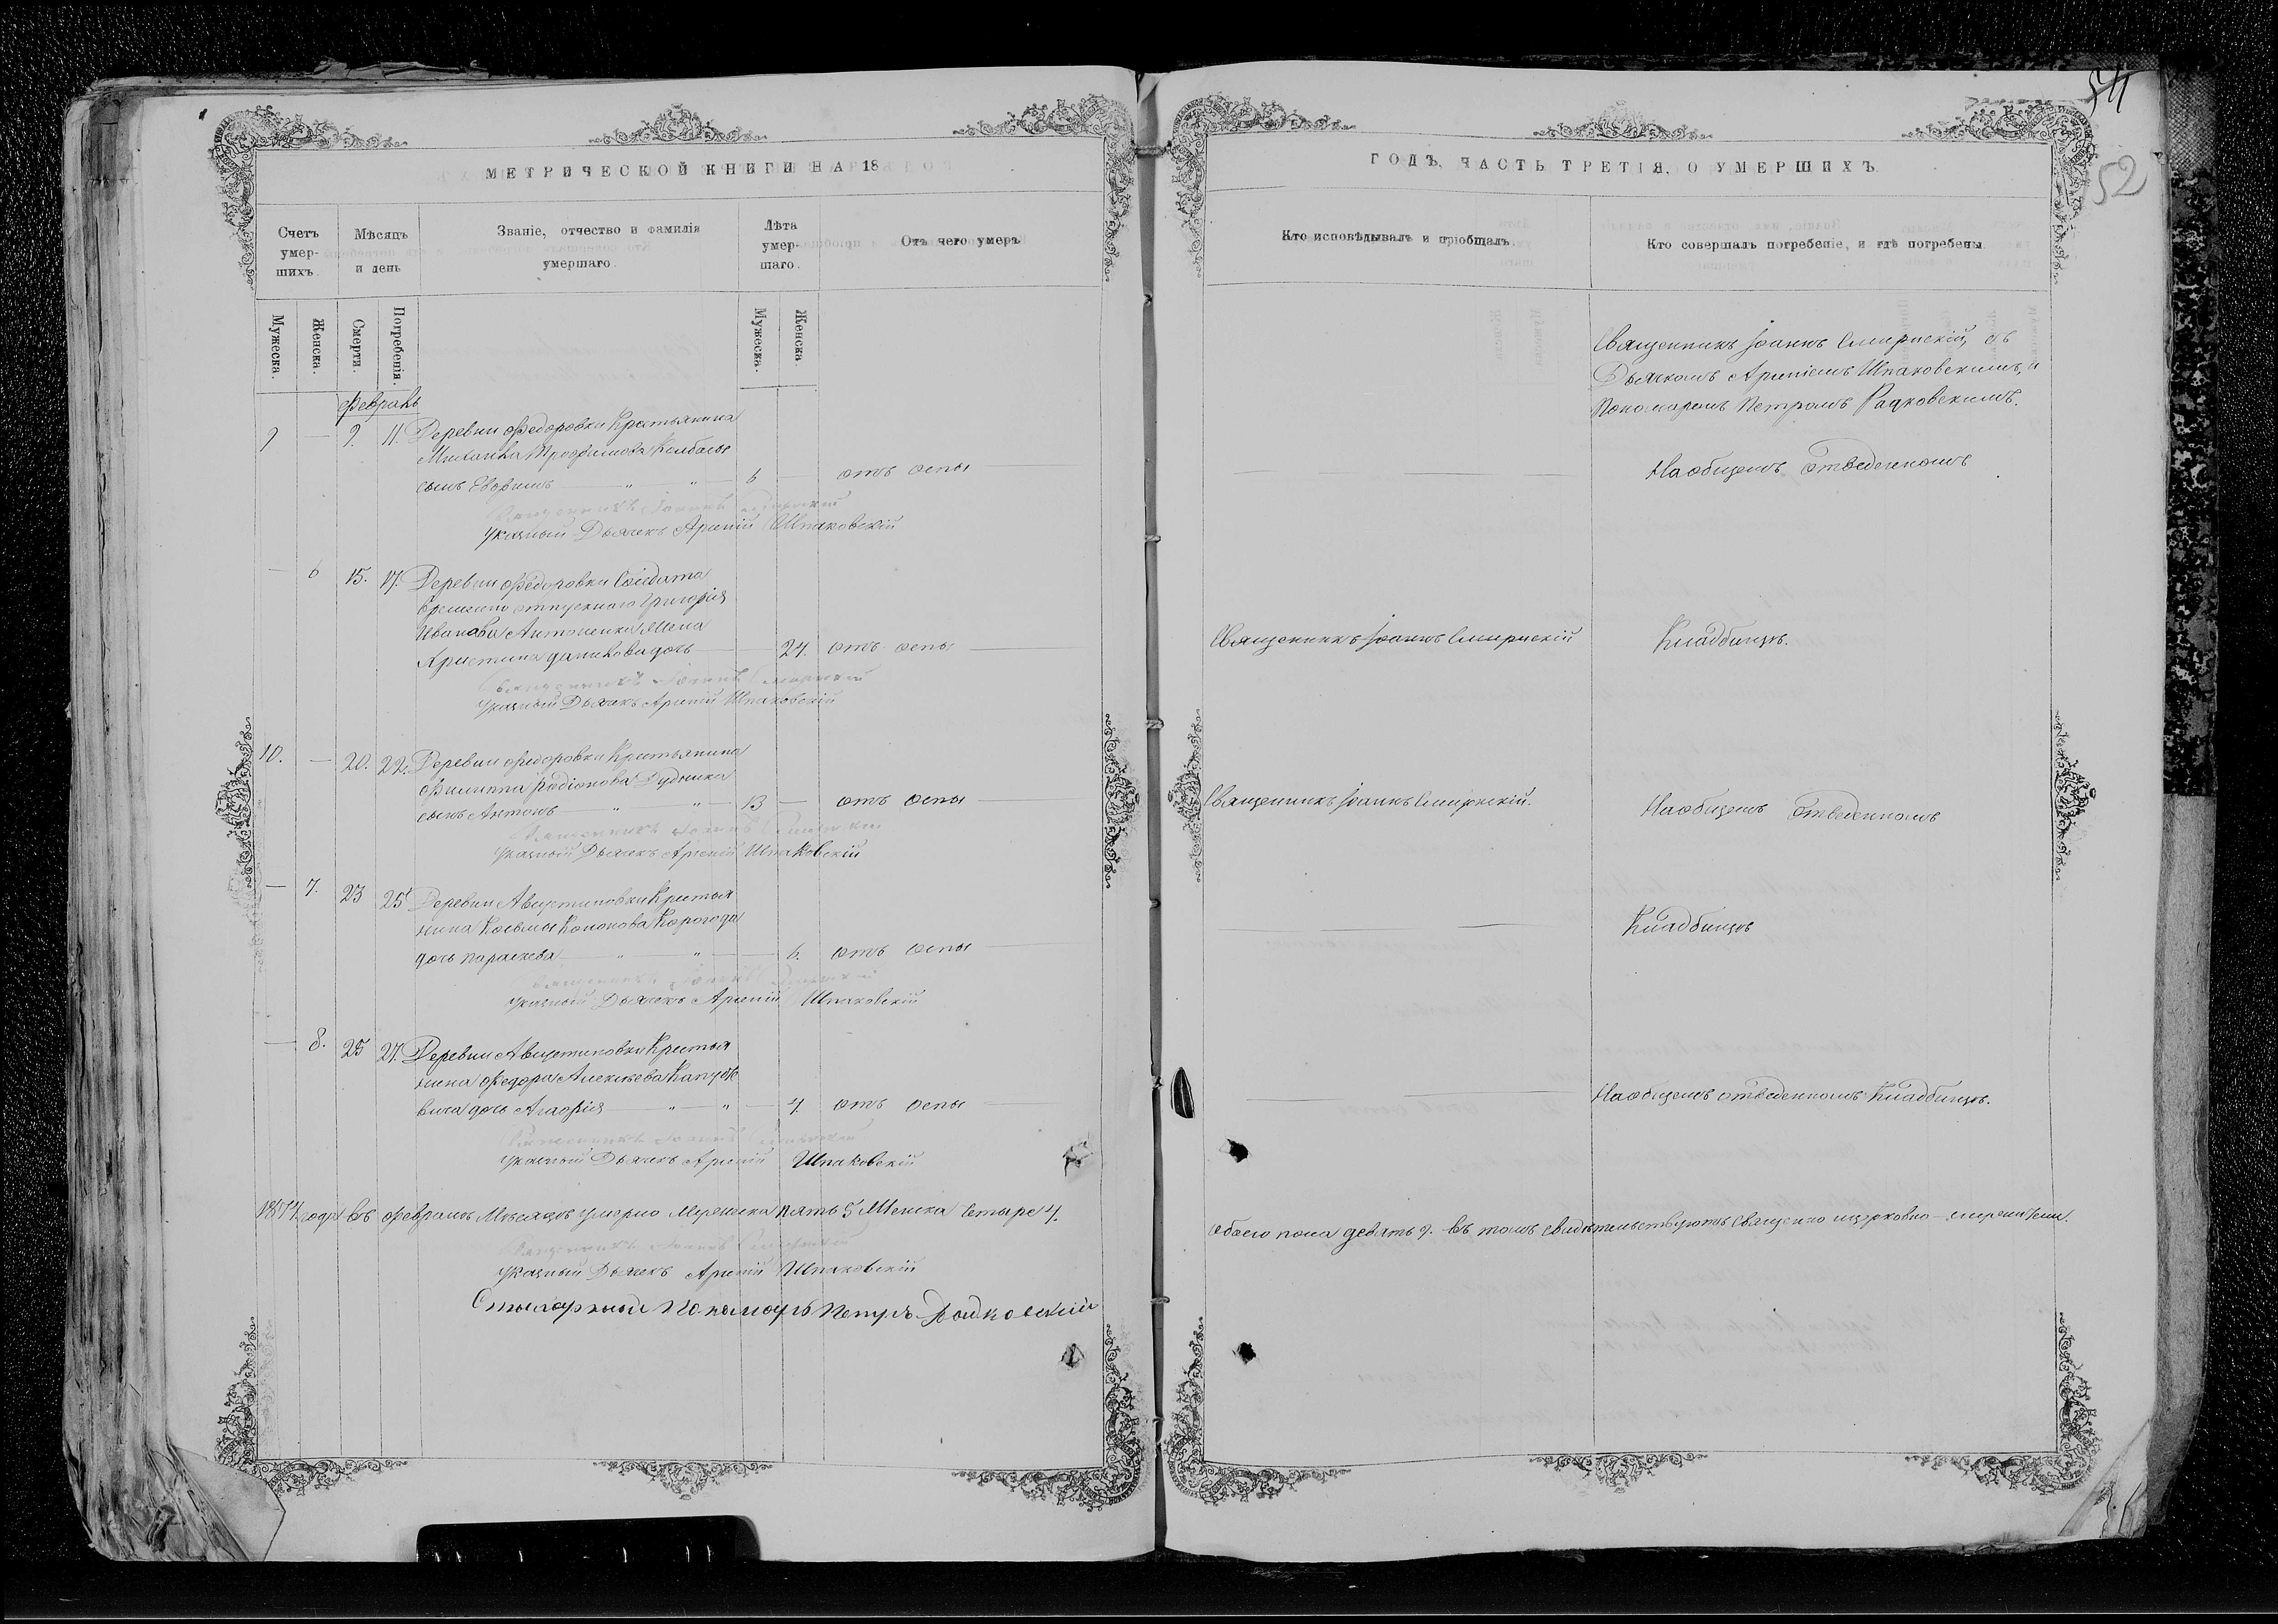 54
52
МЕТРИЧЕСКОЙ КНИГИ НА 18
Счетъ умер-шихъ.
Мѣсяцъ и день
Званіе, отчество и фамилія умершаго.
Лѣта умер-шаго.
Отъ чего умеръ
Мужеска.
Женска.
Смерти.
Погребенія.
Мужеска.
Женска.
Февраль
9 — 9. 11. Деревни Федоровки Крестьянина
Михаила Трофимова
сынъ Евфимъ — " — " — 6 — отъ оспы —
Священникъ Іоаннъ Смирнскій
Указный Дьячекъ Арсеній Шпаковскій
— 6 15. 17. Деревни Федоровки Солдата
временно отпускного Григорія
Иванова Антоненка Жена
Христина дочь — 24. отъ оспы —
Священникъ Іоаннъ Смирнскій
Указный Дьячекъ Арсеній Шпаковскій
10. — 20. 22. Деревни Федоровки Крестьянина
Филиппа Родіонова Дудника
сынъ Антонъ — " — " — 13 — отъ оспы —
Священникъ Іоаннъ Смирнскій
Указный Дьячекъ Арсеній Шпаковскій
— 7. 23 25 Деревни Августиновки Крестья
нина Косьмы Кононова Корогода
дочь Параскева — " — " — 6. отъ оспы —
Священникъ Іоаннъ Смирнскій
Указный Дьячекъ Арсеній Шпаковскій
— 8. 25 27. Деревни Августиновки Крестья
нина Федора Алексѣева
вича дочь Агафія — " — " — 4. отъ оспы —
Священникъ Іоаннъ Смирнскій
Указный Дьячекъ Арсеній Шпаковскій
года въ Февралѣ Мѣсяцѣ умерло Мужеска пять 5 Женска четыре 4.
Священникъ Іоаннъ Смирнскій
Указный Дьячекъ Арсеній Шпаковскій
Пономарь Петръ Радковскій
ГОДЪ, ЧАСТЬ ТРЕТІЯ, О УМЕРШИХЪ
Кто исповѣдывалъ и пріобщалъ.
Кто совершалъ погребеніе, и гдѣ погребены
Священникъ Іоаннъ Смирнскій, съ
Дьячкомъ Арсеніемъ Шпаковскимъ, и
Пономаремъ Петромъ Радковскимъ.
На общемъ отведенномъ
Священникъ Іоаннъ Смирнскій
Кладбищѣ.
Священникъ Іоаннъ Смирнскій.
На общемъ отведенномъ
Кладбищѣ
На общемъ отведенномъ Кладбищѣ.
обоего пола девять 9. Въ томъ свидѣтельствуютъ Священно и церковно-служители.